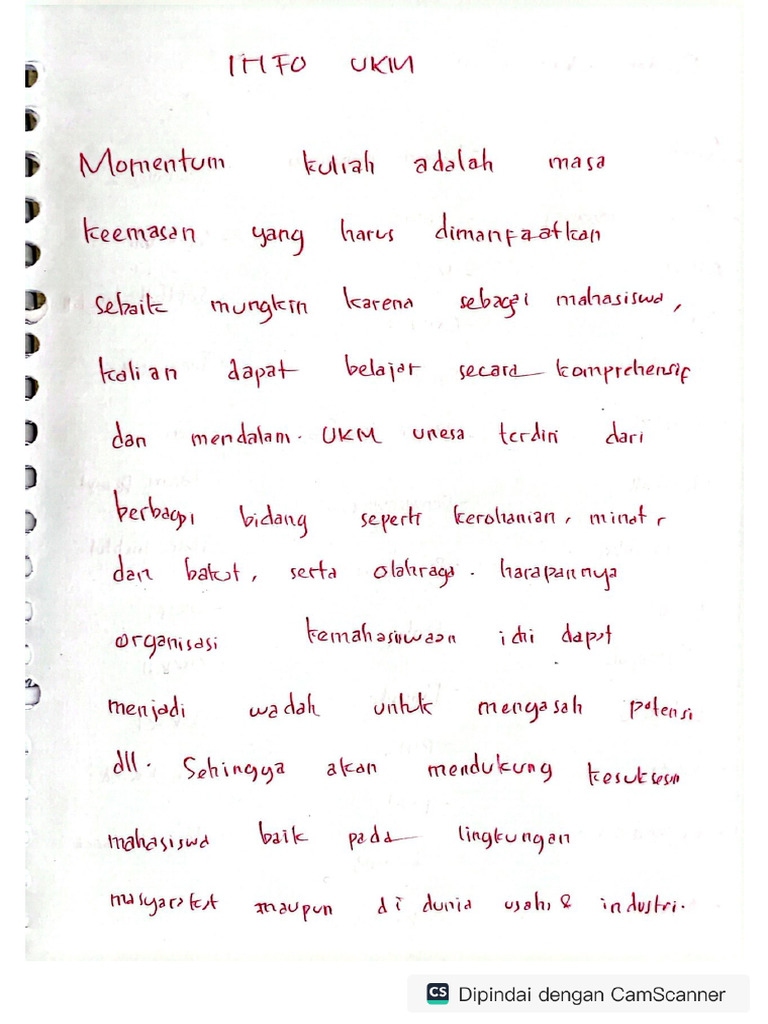 INFO UKM
Momentum kuliah adalah masa
keemasan yang harus dimanfaatkan
sebaik mungkin karena sebagai mahasiswa,
kalian dapat belajar secara komprehensif
dan mendalam. UKM unesa terdiri dari
berbagai bidang seperti kerohanian, minat,
dan bakat, serta olahraga. harapannya
organisasi kemahasiswaan ini dapat
menjadi wadah untuk mengasah potensi
dll. Sehingga akan mendukung kesuksesan
mahasiswa baik pada lingkungan
masyarakat maupun di dunia usaha & industri.
CS Dipindai dengan CamScanner